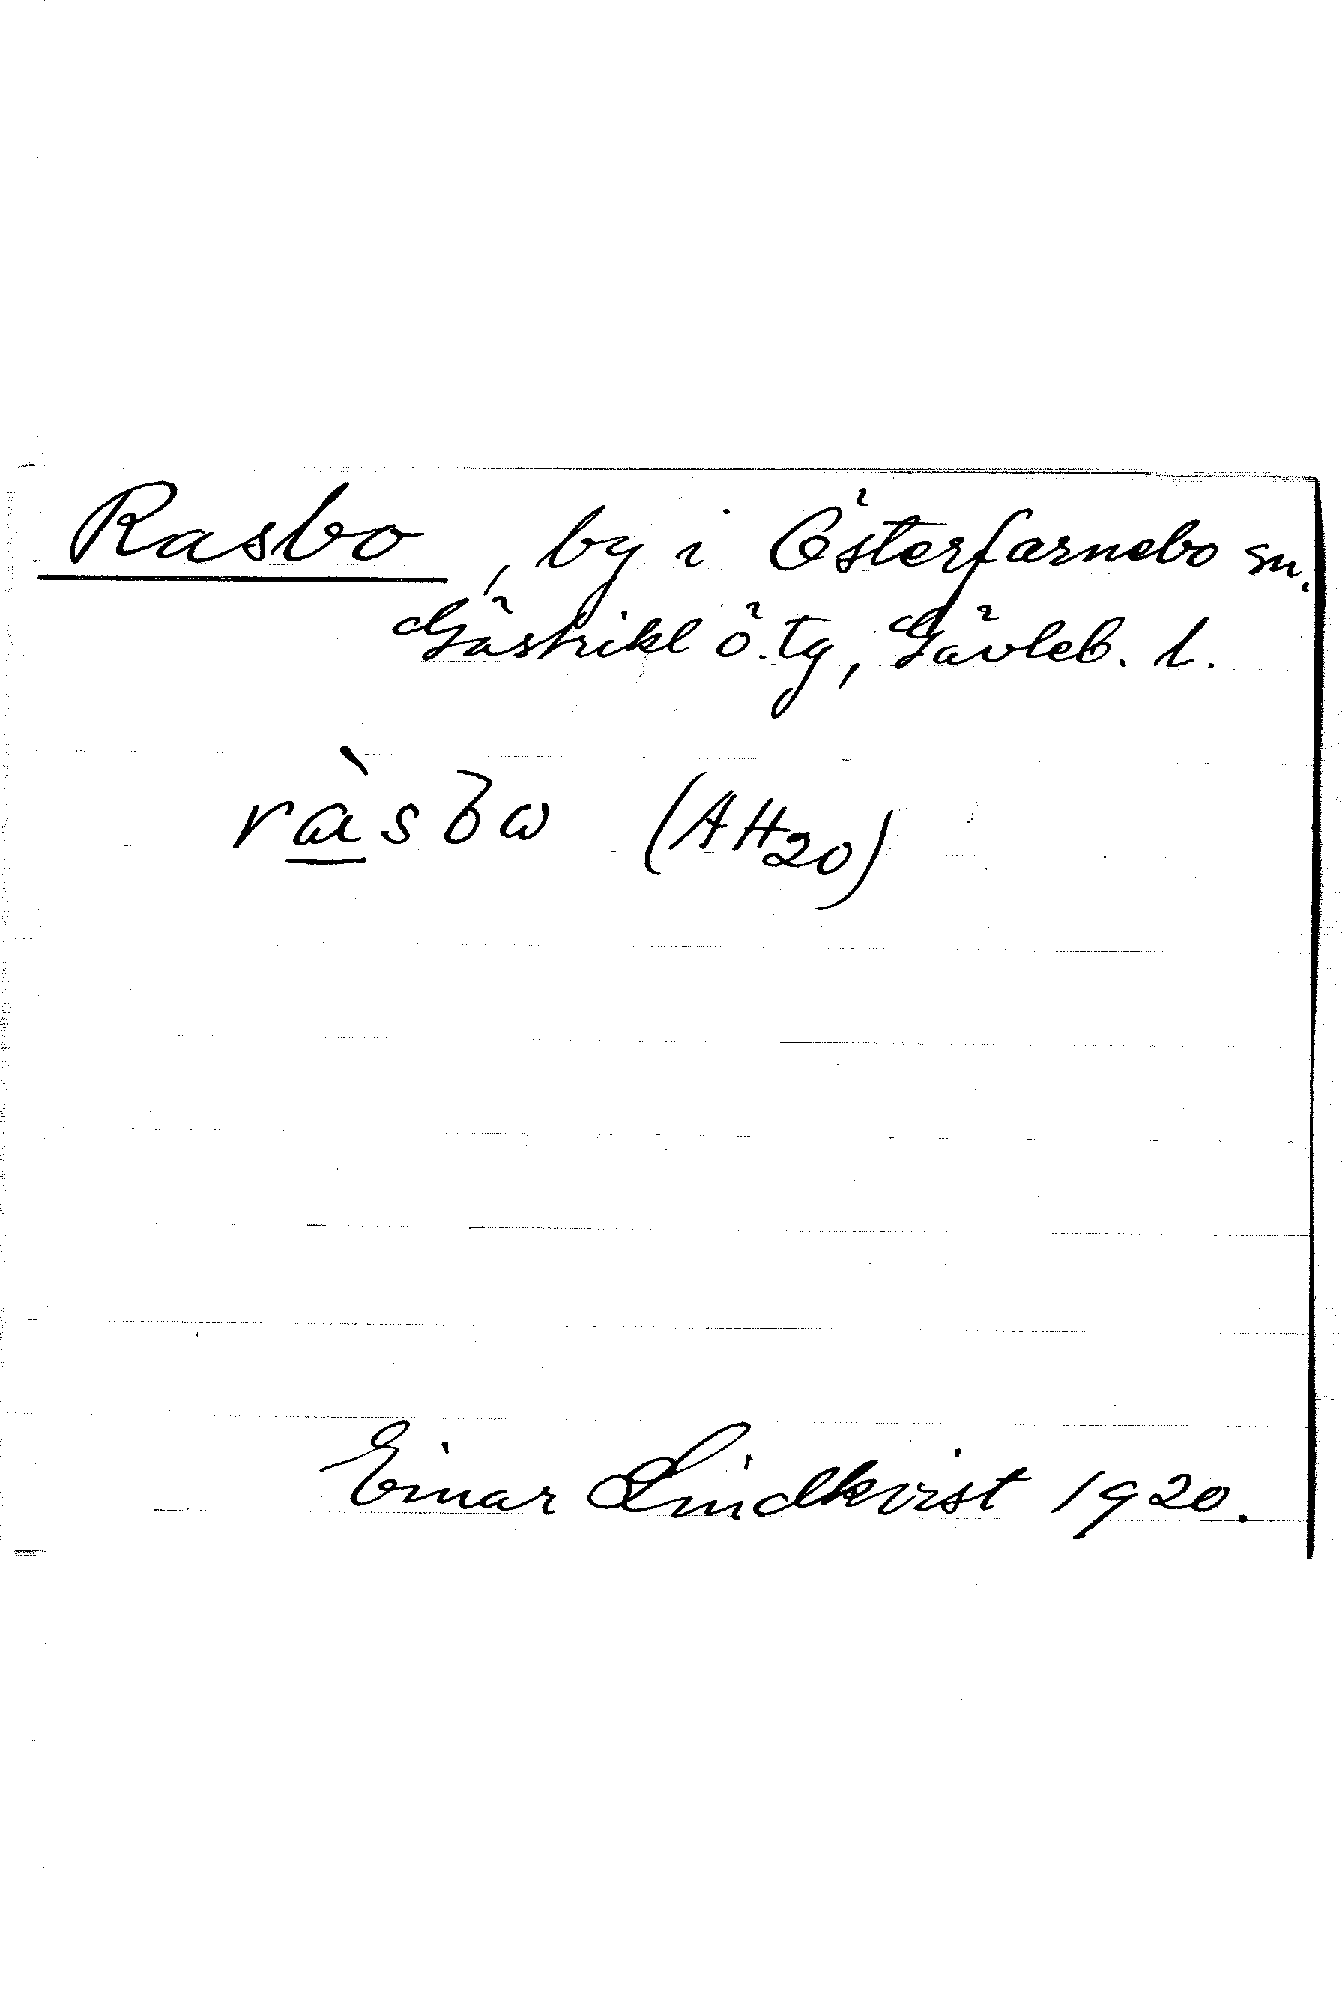 Rasbo, by i Österfarnebo sn.
Gästrikl ö. tg, Gävleb. l.
ràsbω (AH20)
Einar Lindkvist 1920.